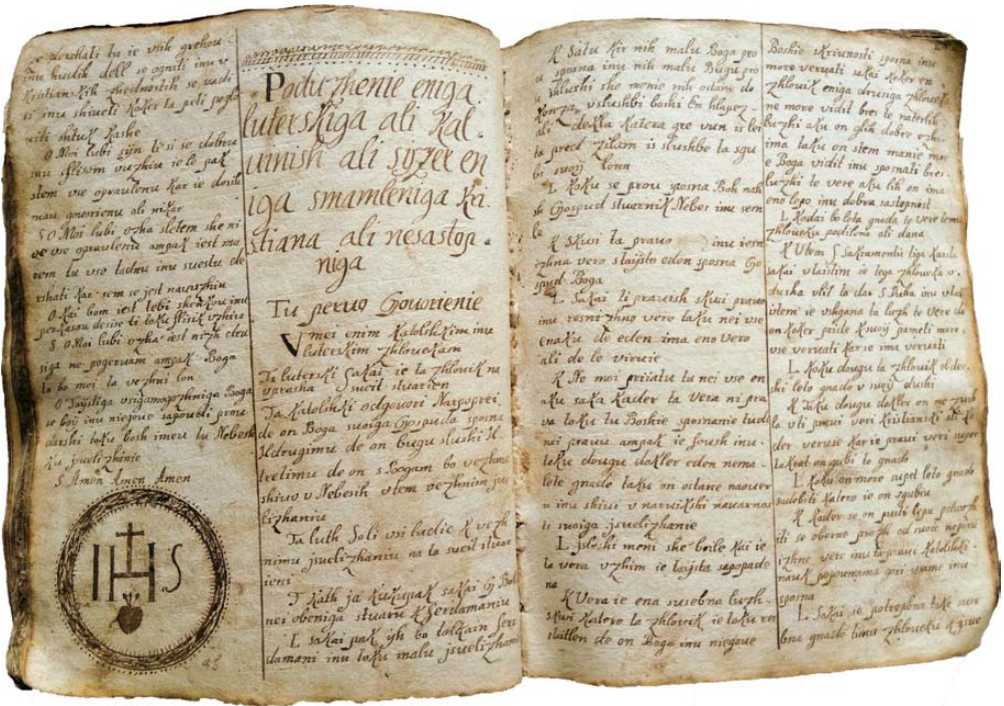 se dershati tu ie vsih grehou
inu hudih dell se ogniti inu v
Kristianskih zhednostih se vaditi
is inu shiveti Koker ta peti poglo
viti shtuk Kashe
O Moi lubi sijn ti si se dobru
inu flissim vuzhiu ie le pak
stem vse opraulenu Kar ie dosih
mau gouorienu ali nikar
S O Moi lubi ozha sletem she ni
ve vse opraulenu ampak iest mo
rem tu vso ladnu inu suestu de
rshati Kar sem se jest nauuzhiu
O Kai bom iest tebi shenkou inu
per Kasou desire ti toku flisik vzhiu
S O Moi lubi ozha iest nizh dru
siga ne pogeruam ampak Boga
ta bo moi ta vezhni lon
O Taystiga vsigamogozhniga Boga
se boy inu niegoue sapoudi prou
darshi toku bosh imeu tu Nebesh
ku jsuelizhanie
S Amen Amen Amen
IHS
Poduzhenie eniga
luterskiga ali Kal-
uinish ali syzer en
iga smamleniga Kri
stiana ali nesastop-
niga
Tu peruo Gouorienie
Vmei enim Katolishkim inu
luterskim zhloueKam
Ta luterski Sakai ie ta zhlouik na
uprasha Sueit stuarien
Ta Katolishki odgouori Narpoprei
de on Boga suoiga Gospuda sposna
K drugimu de on bugu slushi K
tretimu de on s Bogam bo vezhnu
shiuo v Nebesih vtem vezhnim jsue
lizhaniu
Ta luth Soli usi ludie K vezh
nimu jsuelizhaniu na ta sueit stuar
ieni
T Kath ja Kukupak sakai G Boh
nei obeniga stuaru K ferdamaniu
L sakai pak yh bo tolkain fer
damani inu toku malu jsuelizhani
K Satu Kir nih malu Boga pro
u sposna inu nih malu Bugu pro
vslushi she menie nih ostane do
Konza vslushbi boshi En hlapez
ali dekla Katera gre vun is lei
ta pred Zilam is slushbe ta sgu
bi suoy lonn
L Koku se prou sposna Boh nash
sh Gospud stuarnik Nebes inu sem
le
K Skusi ta prauo inu resn
izhna vero taijsto eden sposna Go
spud Boga
L Sakai ti prauish skusi prauo
inu resnizhno vero laku nei vse
enaku de eden ima eno vero
ali de le viruie
K Ne moi priiatu tu nei vse en
aku saka Kader ta Vera ni pra
va toku tu Boshie sposnanie tudi
nei prauu ampak ie fovsh inu
toku dougu doKler eden nema
lete gnade taku on ostane naouer
u inu shiue v naruekshi nauarnos
ti suoiga jsuelizhanie
L jsloshi meni she bolle Kai ie
ta vera vzhim ie taijsta sapopade
na
K Vera ie ena susebna luzh
skusi Katero ta zhlovik ie toku res
sluitlen de on Boga inu niegoue
Boshie skriunosti sposna inu
more veruati sakai Koker en
zhlouik eniga drusiga zhloueka
ne more vidit bres te naterlih
luzhi aku on glih dobre ozhi
ima taku on stem manie mor
e Boga vidit inu sposnati bres
luzhi te vere aku lih on ima
eno lepo inu dobra sastopnost
L Kodai bo lota gnada te vere temu
zhloueku podilona ali dana
K Vtem S Sakramentu tiga Karsta
sakai vtaistim ie lega zhloueka v
dusha vlit ta dar S Duha inu vtai
vtem ie vshgana ta luzh te vere de
en Koker pride K suoij pameti more
vse veruati Kar se ima veruati
L Koku dougu ta zhlouik obder
shi leto gnado v suoij dushi
K Taku dougu dokler on ne zuibla
ta vti praui veri Kristianski ali Ka
der veruie Kar ie praui veri super
takrat on gubi to gnado
L Koku on more supet leto gnado
sadobiti Katero ie on sgubiu
K Kader se on pusti lepu poduzh
iti se oberne prozh od suoie neprau
izhne vere inu ta praui Katolishki
nauk popounama gori vsame inu
sposna
L Sakai ie potrebna take suse
bna gnade timu zhloueku K praue